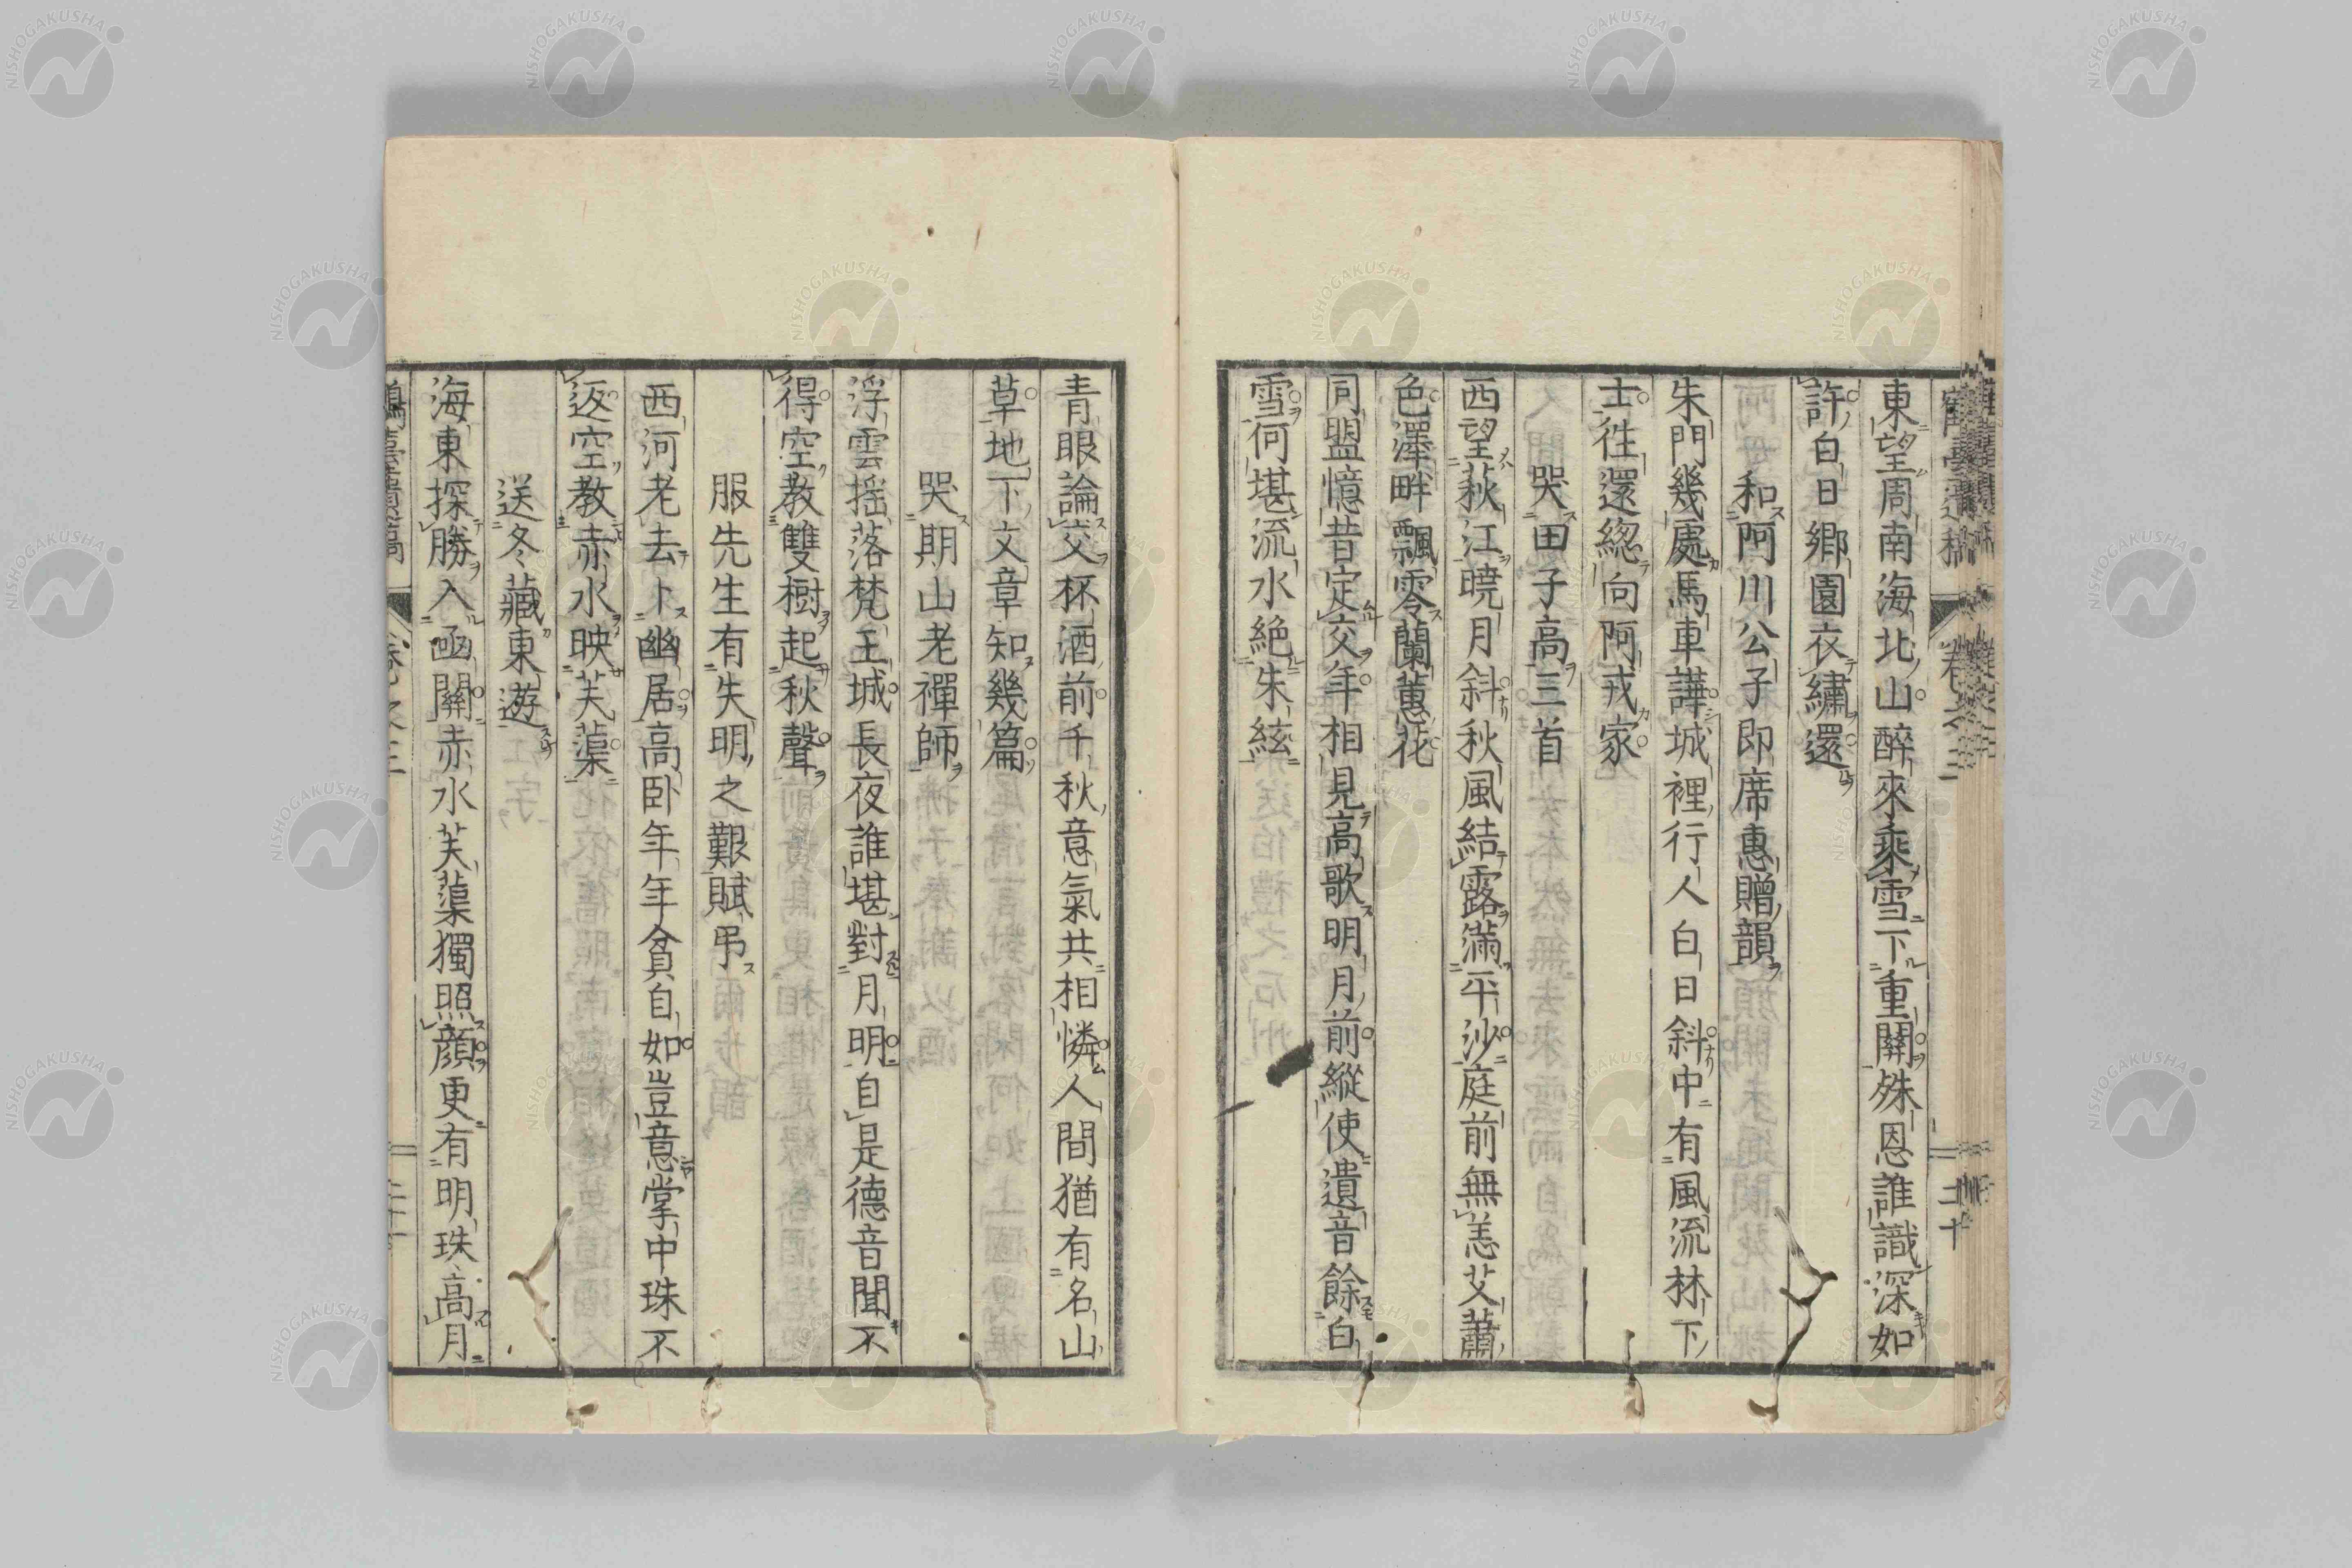 東望周南海北山醉來乘雪下重關殊恩誰識深如
許白日鄉園衣繡還
和阿川公子即席惠贈韻
朱門幾處馬車譁城裡行人白日斜中有風流林下
士徃還緫向阿戎家
哭田子高三首
西望萩江曉月斜秋風結露滿平沙庭前無恙艾蕭
色澤畔飄零蘭蕙花
同盟憶昔定交年相見高歌明月前縱使遺音餘白
雪何堪流水絕朱絃
青眼論交杯酒前千秋意氣共相憐人間猶有名山
草地下文章知幾篇
哭期山老禪師
浮雲搖落梵王城長夜誰堪對月明自是德音聞不
得空教雙樹起秋聲
服先生有失明之艱賦弔
西河老去卜幽居高卧年年貧自如豈意掌中珠不
返空教赤水映芙蕖
送冬藏東遊
海東探勝入函關赤水芙蕖獨照顏更有明珠高月